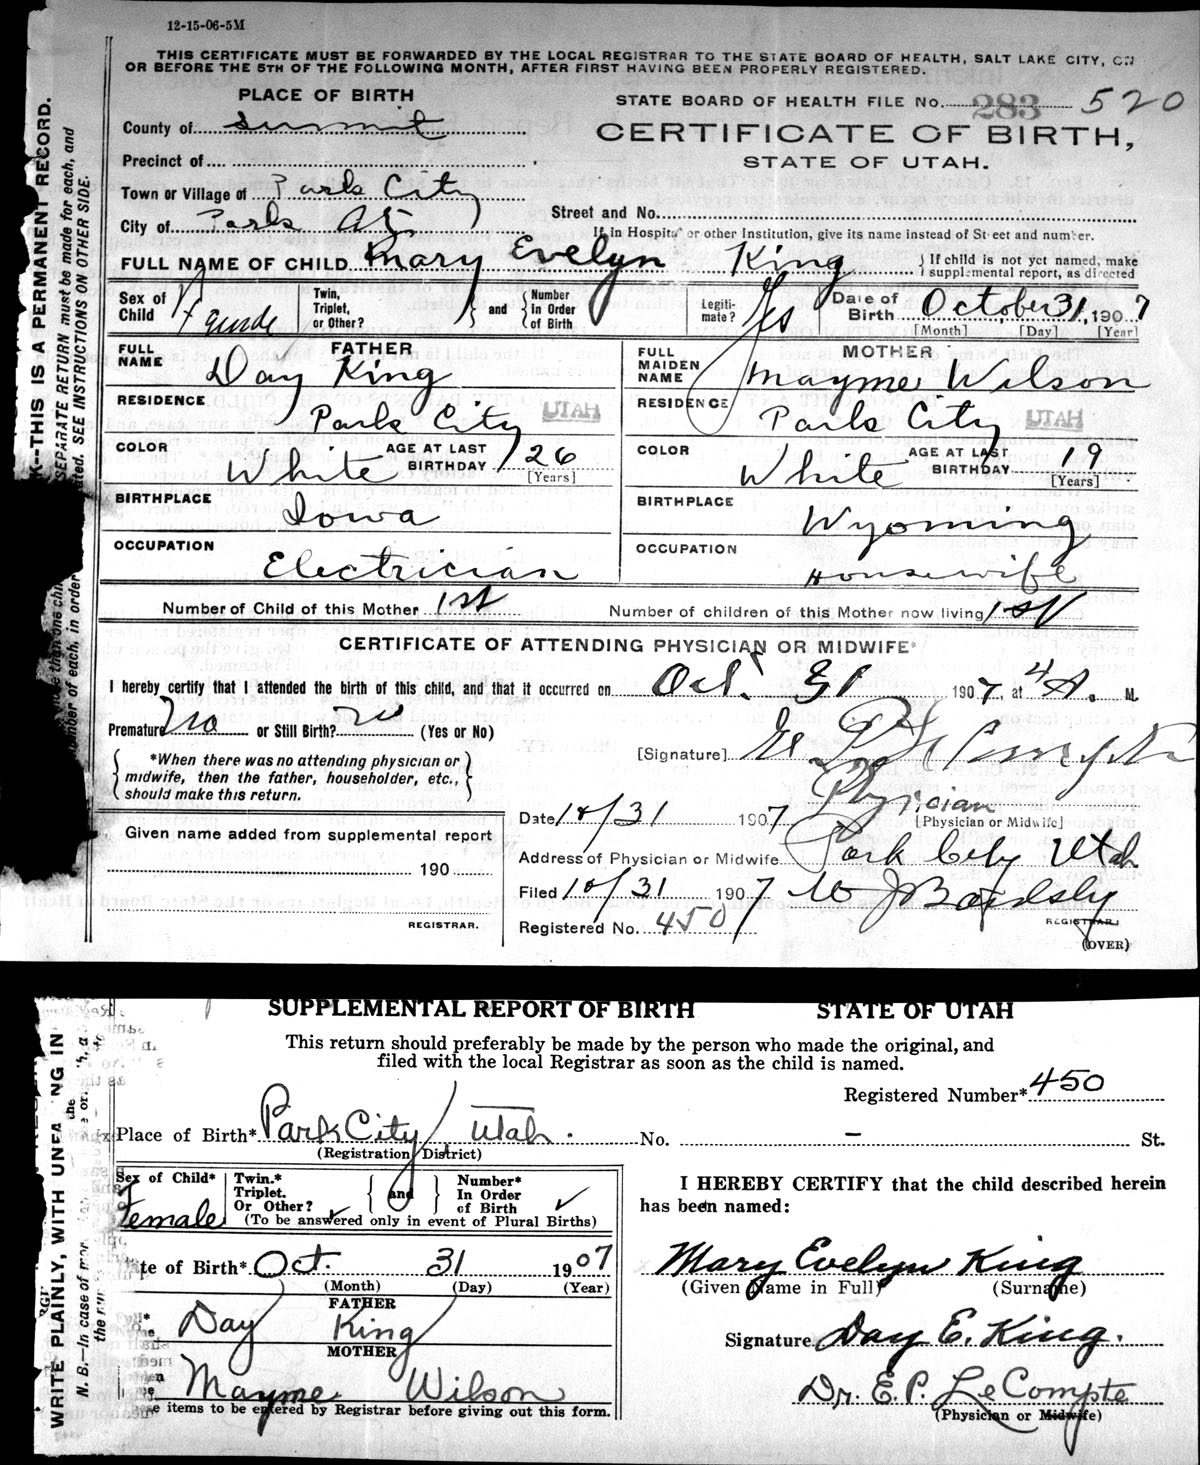 12-15-06-5M
THIS CERTIFICATE MUST BE FORWARDED BY THE LOCAL REGISTRAR TO THE STATE BOARD OF HEALTH, SALT LAKE CITY, ON
OR BEFORE THE 5TH OF THE FOLLOWING MONTH, AFTER FIRST HAVING BEEN PROPERLY REGISTERED.
K--THIS IS A PERMANENT RECORD.
SEPARATE RETURN must be made for each, and
SEE INSTRUCTIONS ON OTHER SIDE.
PLACE OF BIRTH
STATE BOARD OF HEALTH FILE No. 283 520
County of Summit
CERTIFICATE OF BIRTH,
Precinct of
STATE OF UTAH.
Town or Village of Park City
City of Park City
Street and No.
If in Hospital or other Institution, give its name instead of Street and number.
FULL NAME OF CHILD Mary Evelyn King
If child is not yet named, make
supplemental report, as directed
Sex of Child
Twin, Triplet, or Other? and Number In Order of Birth
Legiti-mate? Yes
Date of Birth October 31, 1907
[Month] [Day] [Year]
FULL NAME FATHER Day King
FULL MAIDEN NAME MOTHER Mayme Wilson
RESIDENCE Park City UTAH
RESIDENCE Park City UTAH
COLOR White AGE AT LAST BIRTHDAY 26 [Years]
COLOR White AGE AT LAST BIRTHDAY 19 [Years]
BIRTHPLACE Iowa
BIRTHPLACE Wyoming
OCCUPATION Electrician
OCCUPATION Housewife
Number of Child of this Mother 1st
Number of children of this Mother now living 1st
CERTIFICATE OF ATTENDING PHYSICIAN OR MIDWIFE*
I hereby certify that I attended the birth of this child, and that it occurred on Oct. 31 1907, at 4 A. M.
Premature No or Still Birth? no (Yes or No)
[Signature]
*When there was no attending physician or
midwife, then the father, householder, etc.,
should make this return.
Physician
[Physician or Midwife]
Date 10/31 1907
Given name added from supplemental report
190
REGISTRAR.
Address of Physician or Midwife Park City Utah
Filed 10/31 1907
REGISTRAR
Registered No. 450
(OVER)
SUPPLEMENTAL REPORT OF BIRTH STATE OF UTAH
This return should preferably be made by the person who made the original, and
filed with the local Registrar as soon as the child is named.
WRITE PLAINLY, WITH
N. B.—In case of
Registered Number* 450
Place of Birth* Park City Utah. No. – St.
(Registration District)
Sex of Child* Female
Twin.* Triplet. Or Other? and Number* In Order of Birth
(To be answered only in event of Plural Births)
I HEREBY CERTIFY that the child described herein
has been named:
Date of Birth* Oct. 31 1907
(Month) (Day) (Year)
Mary Evelyn King
(Given Name in Full) (Surname)
FATHER
Day King
Signature Day E. King.
MOTHER
Mayme Wilson
Dr. E. P. LeCompte
(Physician or Midwife)
items to be entered by Registrar before giving out this form.